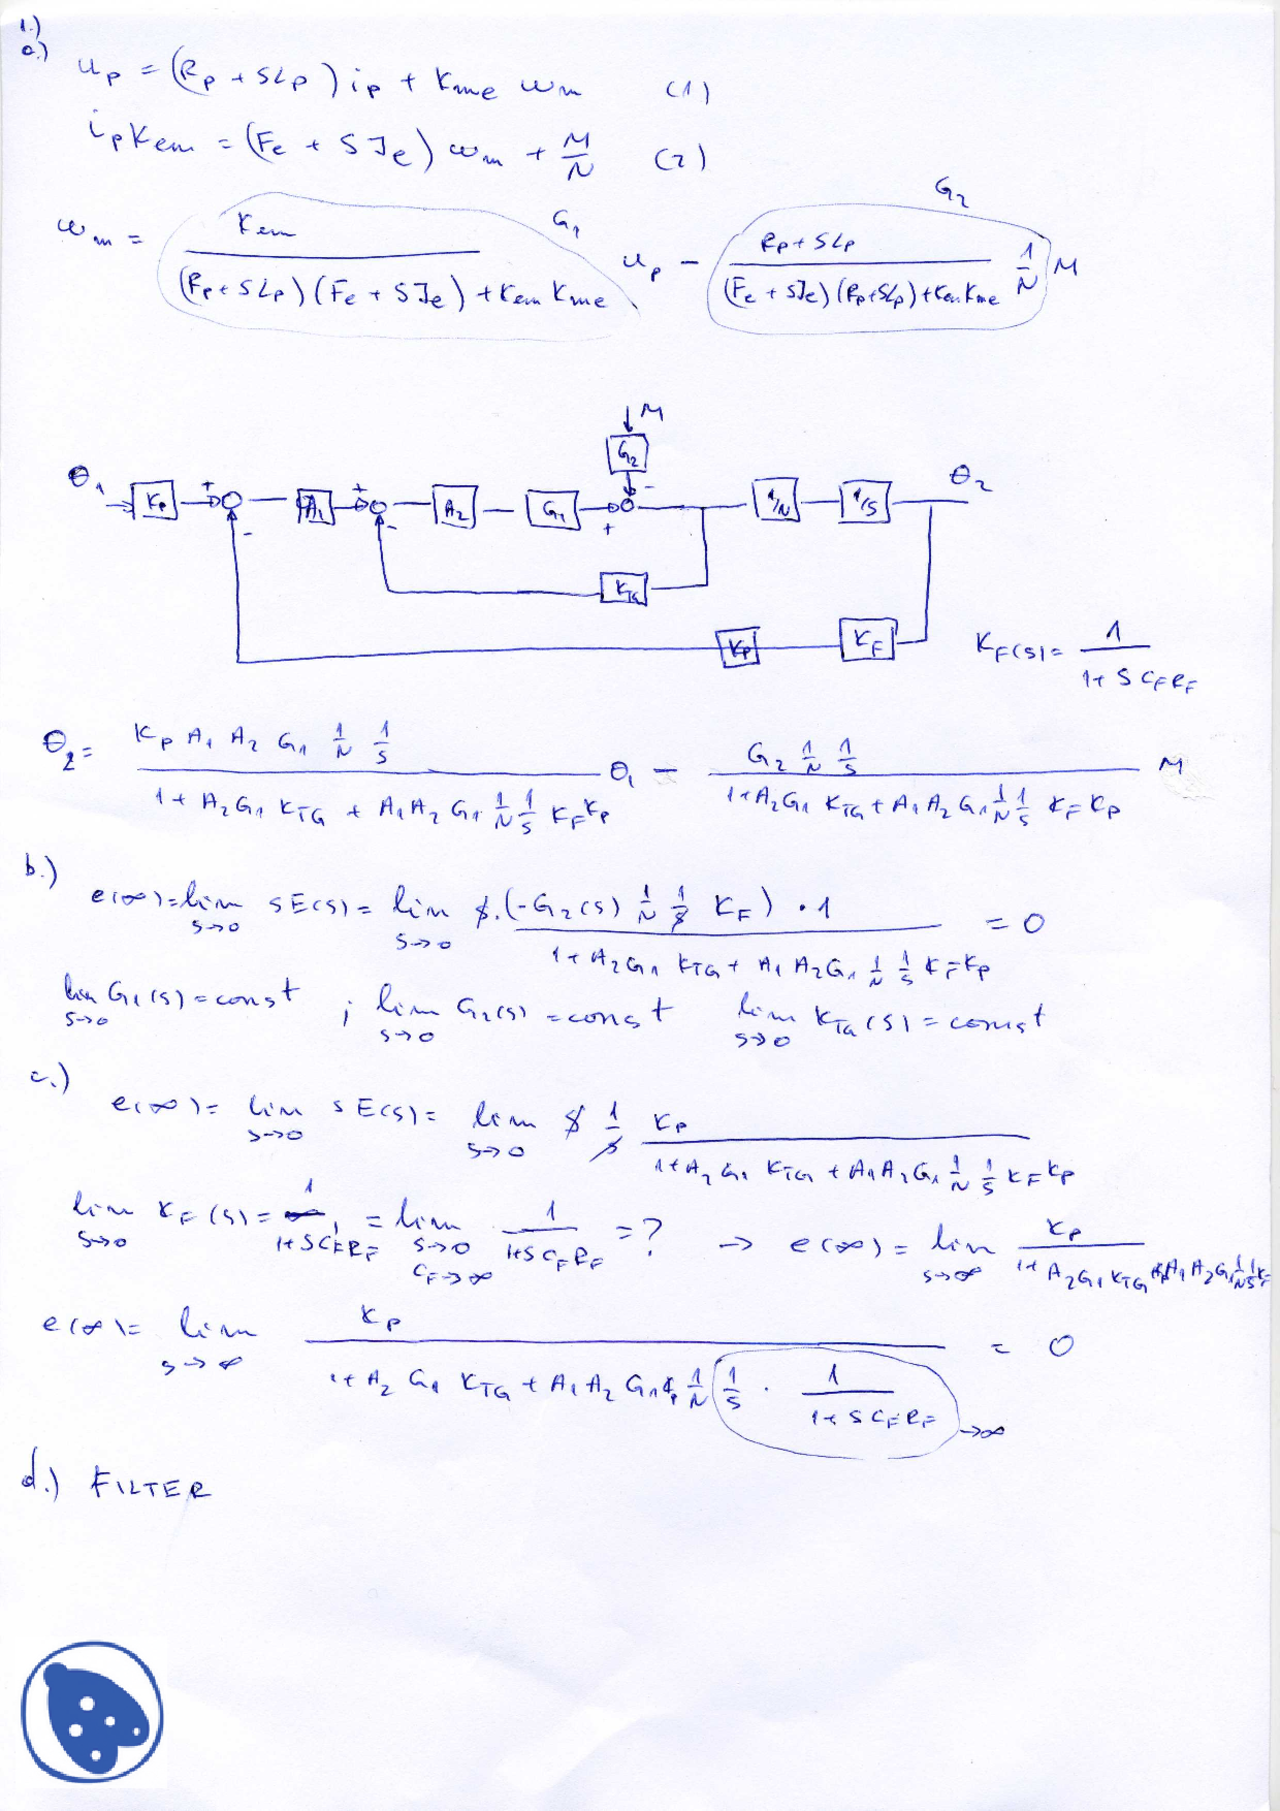 1.)
a.)
u_p = (R_p + SL_p) i_p + K_me ω_m (1)
i_p K_em = (F_e + S J_e) ω_m + M/N (2)
ω_m = K_em / ((R_p + SL_p)(F_e + S J_e) + K_em K_me) u_p - (R_p + SL_p) / ((F_e + SJ_e)(R_p + SL_p) + K_em K_me) 1/N M
G_1
G_2
M
G_2
θ_1 K_p + - A_1 + - A_2 G_1 + - 1/N 1/S θ_2
K_TG
K_P K_F K_F(s) = 1 / (1 + S C_F R_F)
θ_2 = (K_p A_1 A_2 G_1 1/N 1/S) / (1 + A_2 G_1 K_TG + A_1 A_2 G_1 1/N 1/S K_F K_p) θ_1 - (G_2 1/N 1/S) / (1 + A_2 G_1 K_TG + A_1 A_2 G_1 1/N 1/S K_F K_p) M
b.)
e(∞) = lim s→0 sE(s) = lim s→0 s · (-G_2(s) 1/N 1/s K_F) · 1 / (1 + A_2 G_1 K_TG + A_1 A_2 G_1 1/N 1/S K_F K_p) = 0
lim s→0 G_1(s) = const ; lim s→0 G_2(s) = const lim s→0 K_TG(s) = const
c.)
e(∞) = lim s→0 sE(s) = lim s→0 s 1/s K_p / (1 + A_2 G_1 K_TG + A_1 A_2 G_1 1/N 1/S K_F K_p)
lim s→0 K_F(s) = 1 / (1 + SC_F R_F) = lim s→0 C_F→∞ 1 / (1 + S C_F R_F) = ? → e(∞) = lim s→∞ K_p / (1 + A_2 G_1 K_TG + A_1 A_2 G_1 1/N 1/S K_F)
e(∞) = lim s→∞ K_p / (1 + A_2 G_1 K_TG + A_1 A_2 G_1 K_p 1/N 1/S · 1 / (1 + S C_F R_F)) = 0
→∞
d.) FILTER